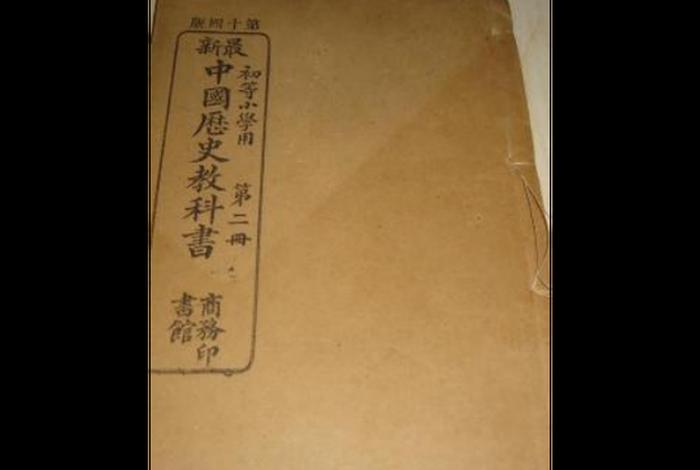 第十四版
最新
初等小學用 第二冊
中國歷史教科書
商務印
書館